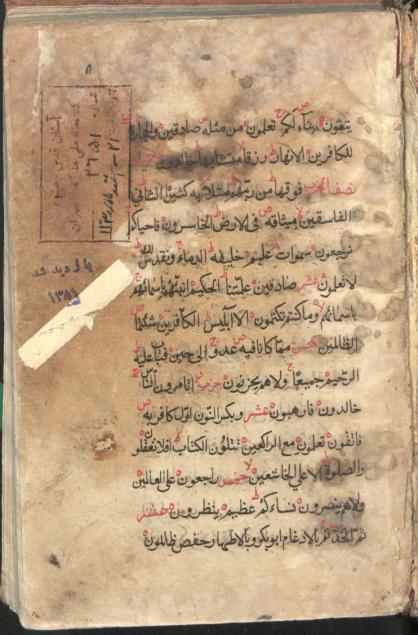 يتقون بناء لكم تعلمون من مثله صادقين والحجارة
للكافرين الانهار رزقا متشابها خالدون
نصف الحزب فوقها من ربهم مثلا به كثيرا الثاني
الفاسقين ميثاقه في الارض الخاسرون فاحياكم
ترجعون سموات عليم خليفة الدماء ونقدس لك
لا تعلمون عشر صادقين علمتنا الحكيم انبئهم باسمائهم
باسمائهم وما كنتم تكتمون الا ابليس الكافرين شئتما
الظالمين خمس مما كانا فيه عدو الى حين فتاب عليه
الرحيم جميعا ولا هم يحزنون حزب اتامرون الناس
خالدون فارهبون عشر وبكر النون اول كافر به
فاتقون تعلمون مع الراكعين تتلون الكتاب افلا تعقلون
والصلوة الا على الخاشعين خمس راجعون على العالمين
ولا هم ينصرون نساءكم عظيم ينظرون عشر
ثم اتخذتم بالادغام ابو بكر وبالاظهار حفص ظالمون
بازدید شد
۱۳۸۱